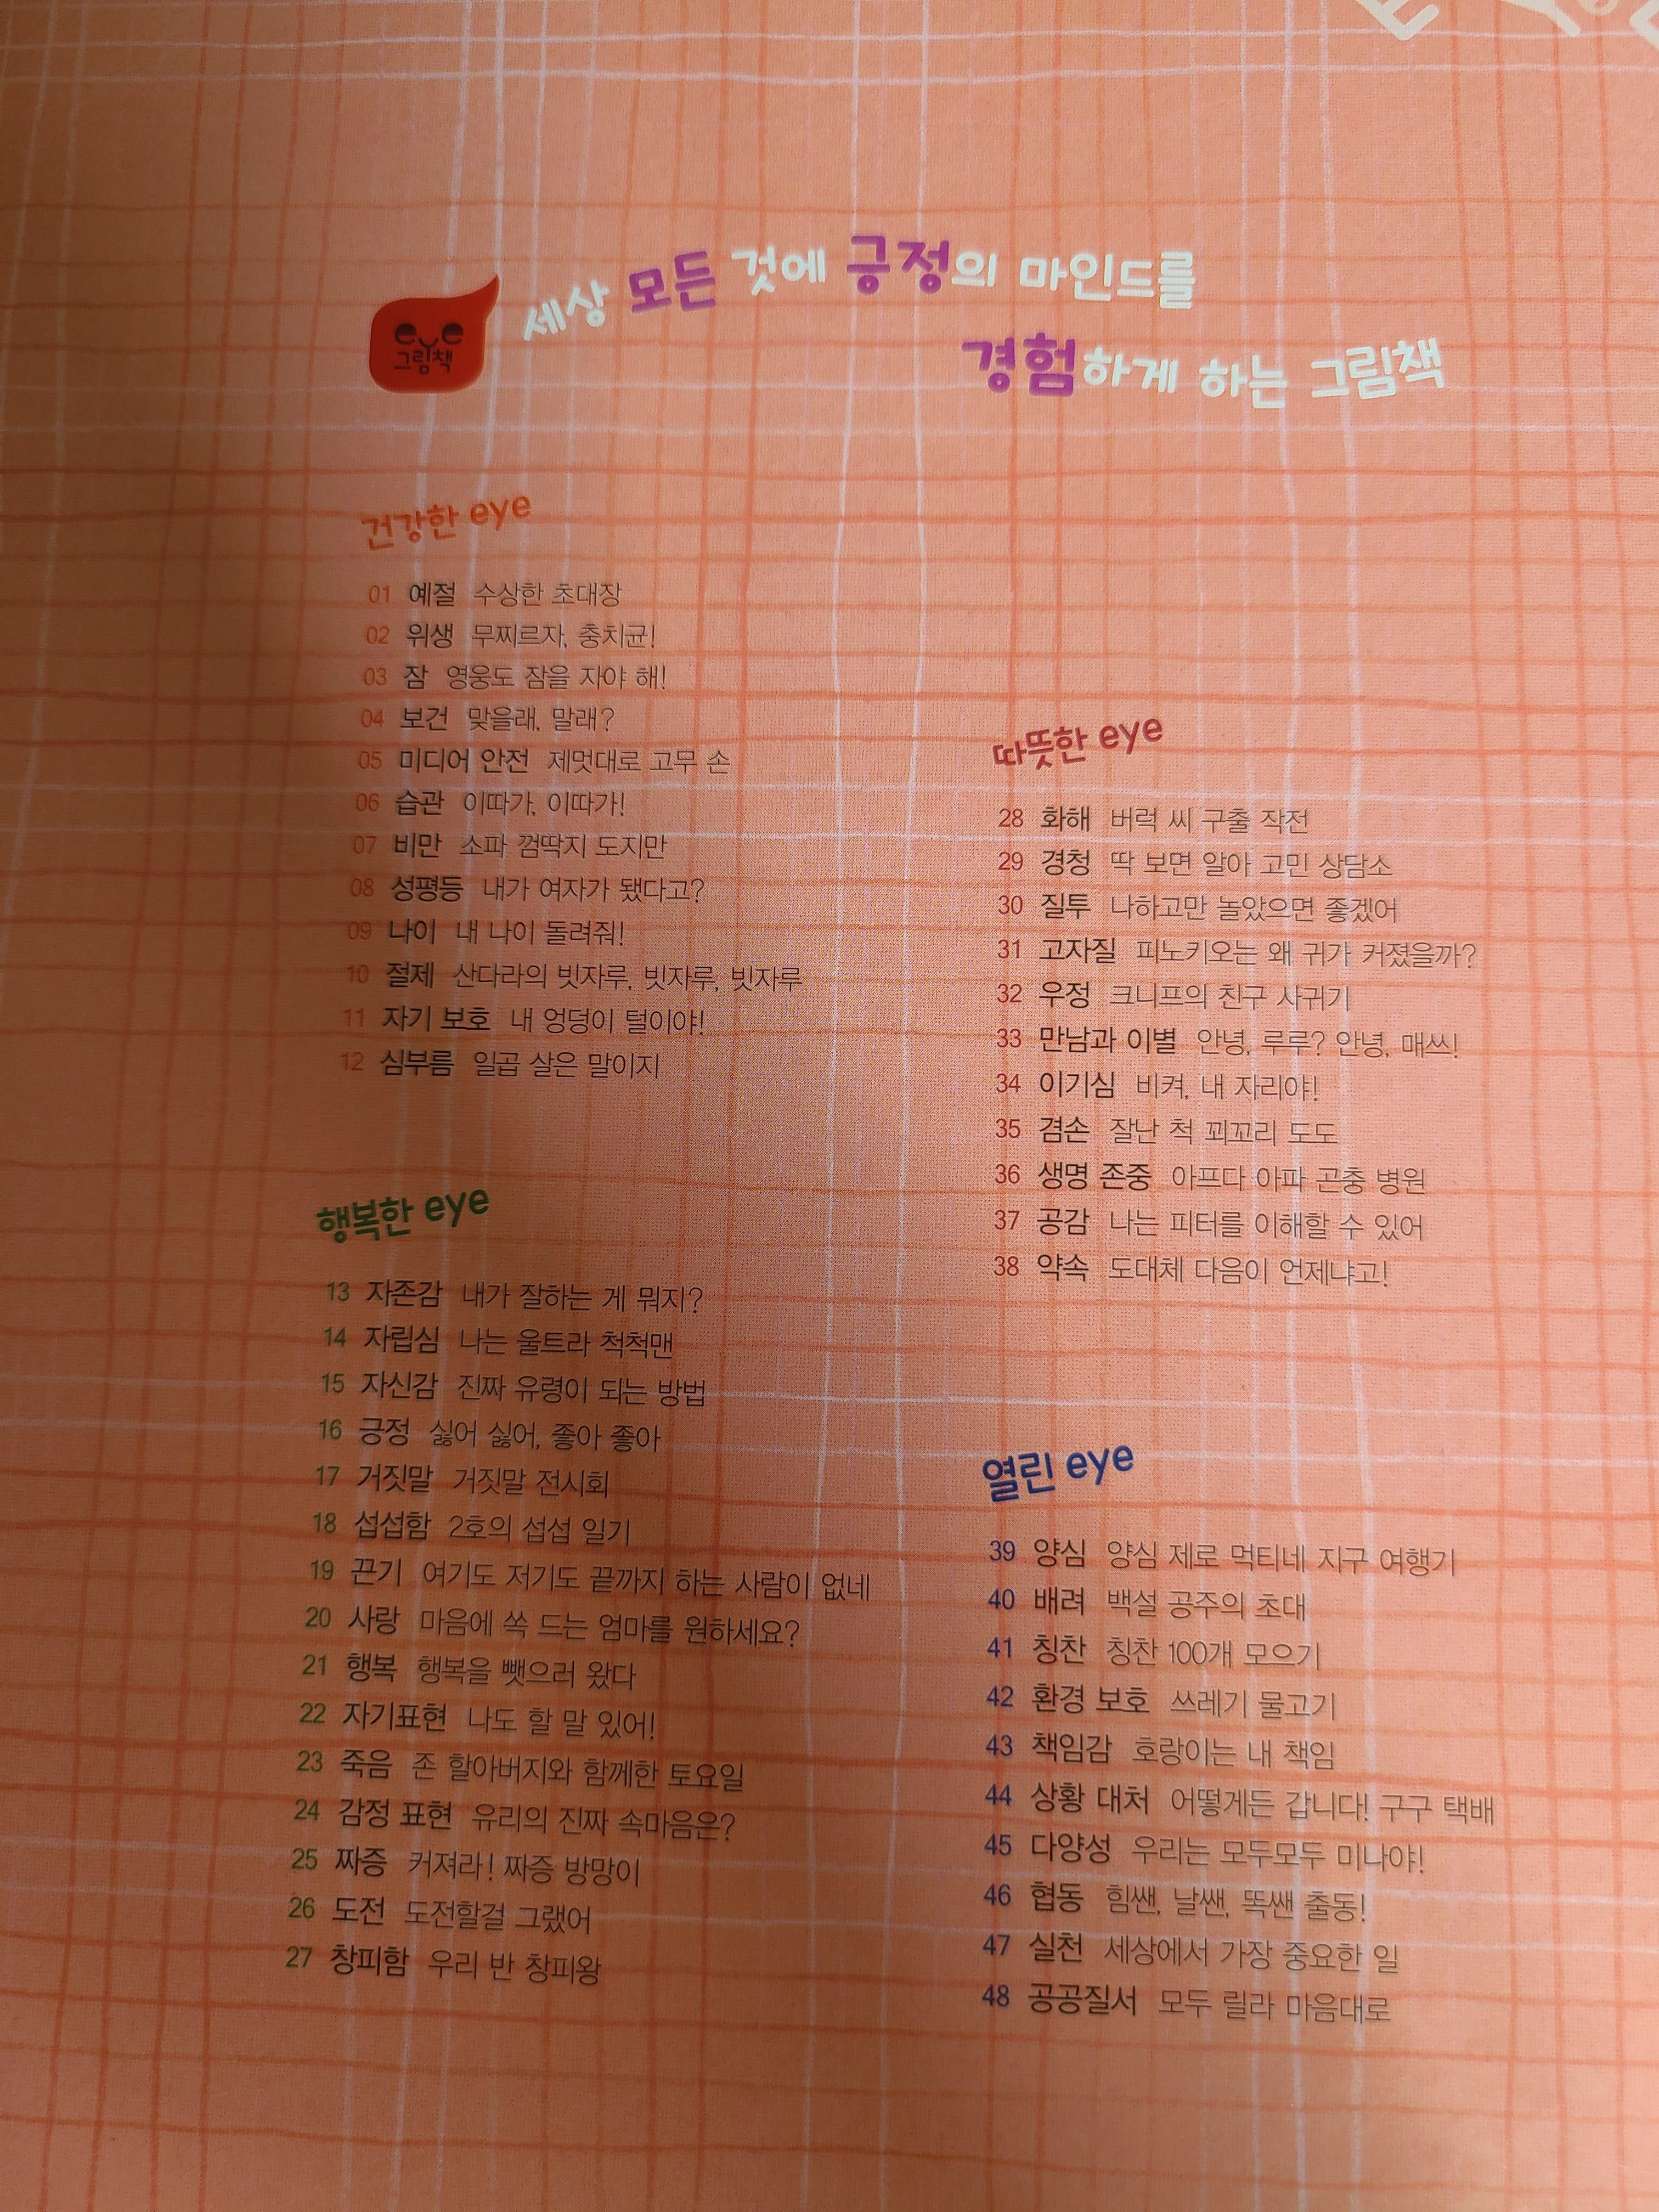 EYE
eye
그림책
세상 모든 것에 긍정의 마인드를
경험하게 하는 그림책
건강한 eye
01 예절 수상한 초대장
02 위생 무찌르자, 충치균!
03 잠 영웅도 잠을 자야 해!
04 보건 맞을래, 말래?
05 미디어 안전 제멋대로 고무 손
06 습관 이따가, 이따가!
07 비만 소파 껌딱지 도지만
08 성평등 내가 여자가 됐다고?
09 나이 내 나이 돌려줘!
10 절제 산다라의 빗자루, 빗자루, 빗자루
11 자기 보호 내 엉덩이 털이야!
12 심부름 일곱 살은 말이지
행복한 eye
13 자존감 내가 잘하는 게 뭐지?
14 자립심 나는 울트라 척척맨
15 자신감 진짜 유령이 되는 방법
16 긍정 싫어 싫어, 좋아 좋아
17 거짓말 거짓말 전시회
18 섭섭함 2호의 섭섭 일기
19 끈기 여기도 저기도 끝까지 하는 사람이 없네
20 사랑 마음에 쏙 드는 엄마를 원하세요?
21 행복 행복을 뺏으러 왔다
22 자기표현 나도 할 말 있어!
23 죽음 존 할아버지와 함께한 토요일
24 감정 표현 유리의 진짜 속마음은?
25 짜증 커져라! 짜증 방망이
26 도전 도전할걸 그랬어
27 창피함 우리 반 창피왕
따뜻한 eye
28 화해 버럭 씨 구출 작전
29 경청 딱 보면 알아 고민 상담소
30 질투 나하고만 놀았으면 좋겠어
31 고자질 피노키오는 왜 귀가 커졌을까?
32 우정 크니프의 친구 사귀기
33 만남과 이별 안녕, 루루? 안녕, 매쓰!
34 이기심 비켜, 내 자리야!
35 겸손 잘난 척 꾀꼬리 도도
36 생명 존중 아프다 아파 곤충 병원
37 공감 나는 피터를 이해할 수 있어
38 약속 도대체 다음이 언제냐고!
열린 eye
39 양심 양심 제로 먹티네 지구 여행기
40 배려 백설 공주의 초대
41 칭찬 칭찬 100개 모으기
42 환경 보호 쓰레기 물고기
43 책임감 호랑이는 내 책임
44 상황 대처 어떻게든 갑니다! 구구 택배
45 다양성 우리는 모두모두 미나야!
46 협동 힘쌘, 날쌘, 똑쌘 출동!
47 실천 세상에서 가장 중요한 일
48 공공질서 모두 릴라 마음대로